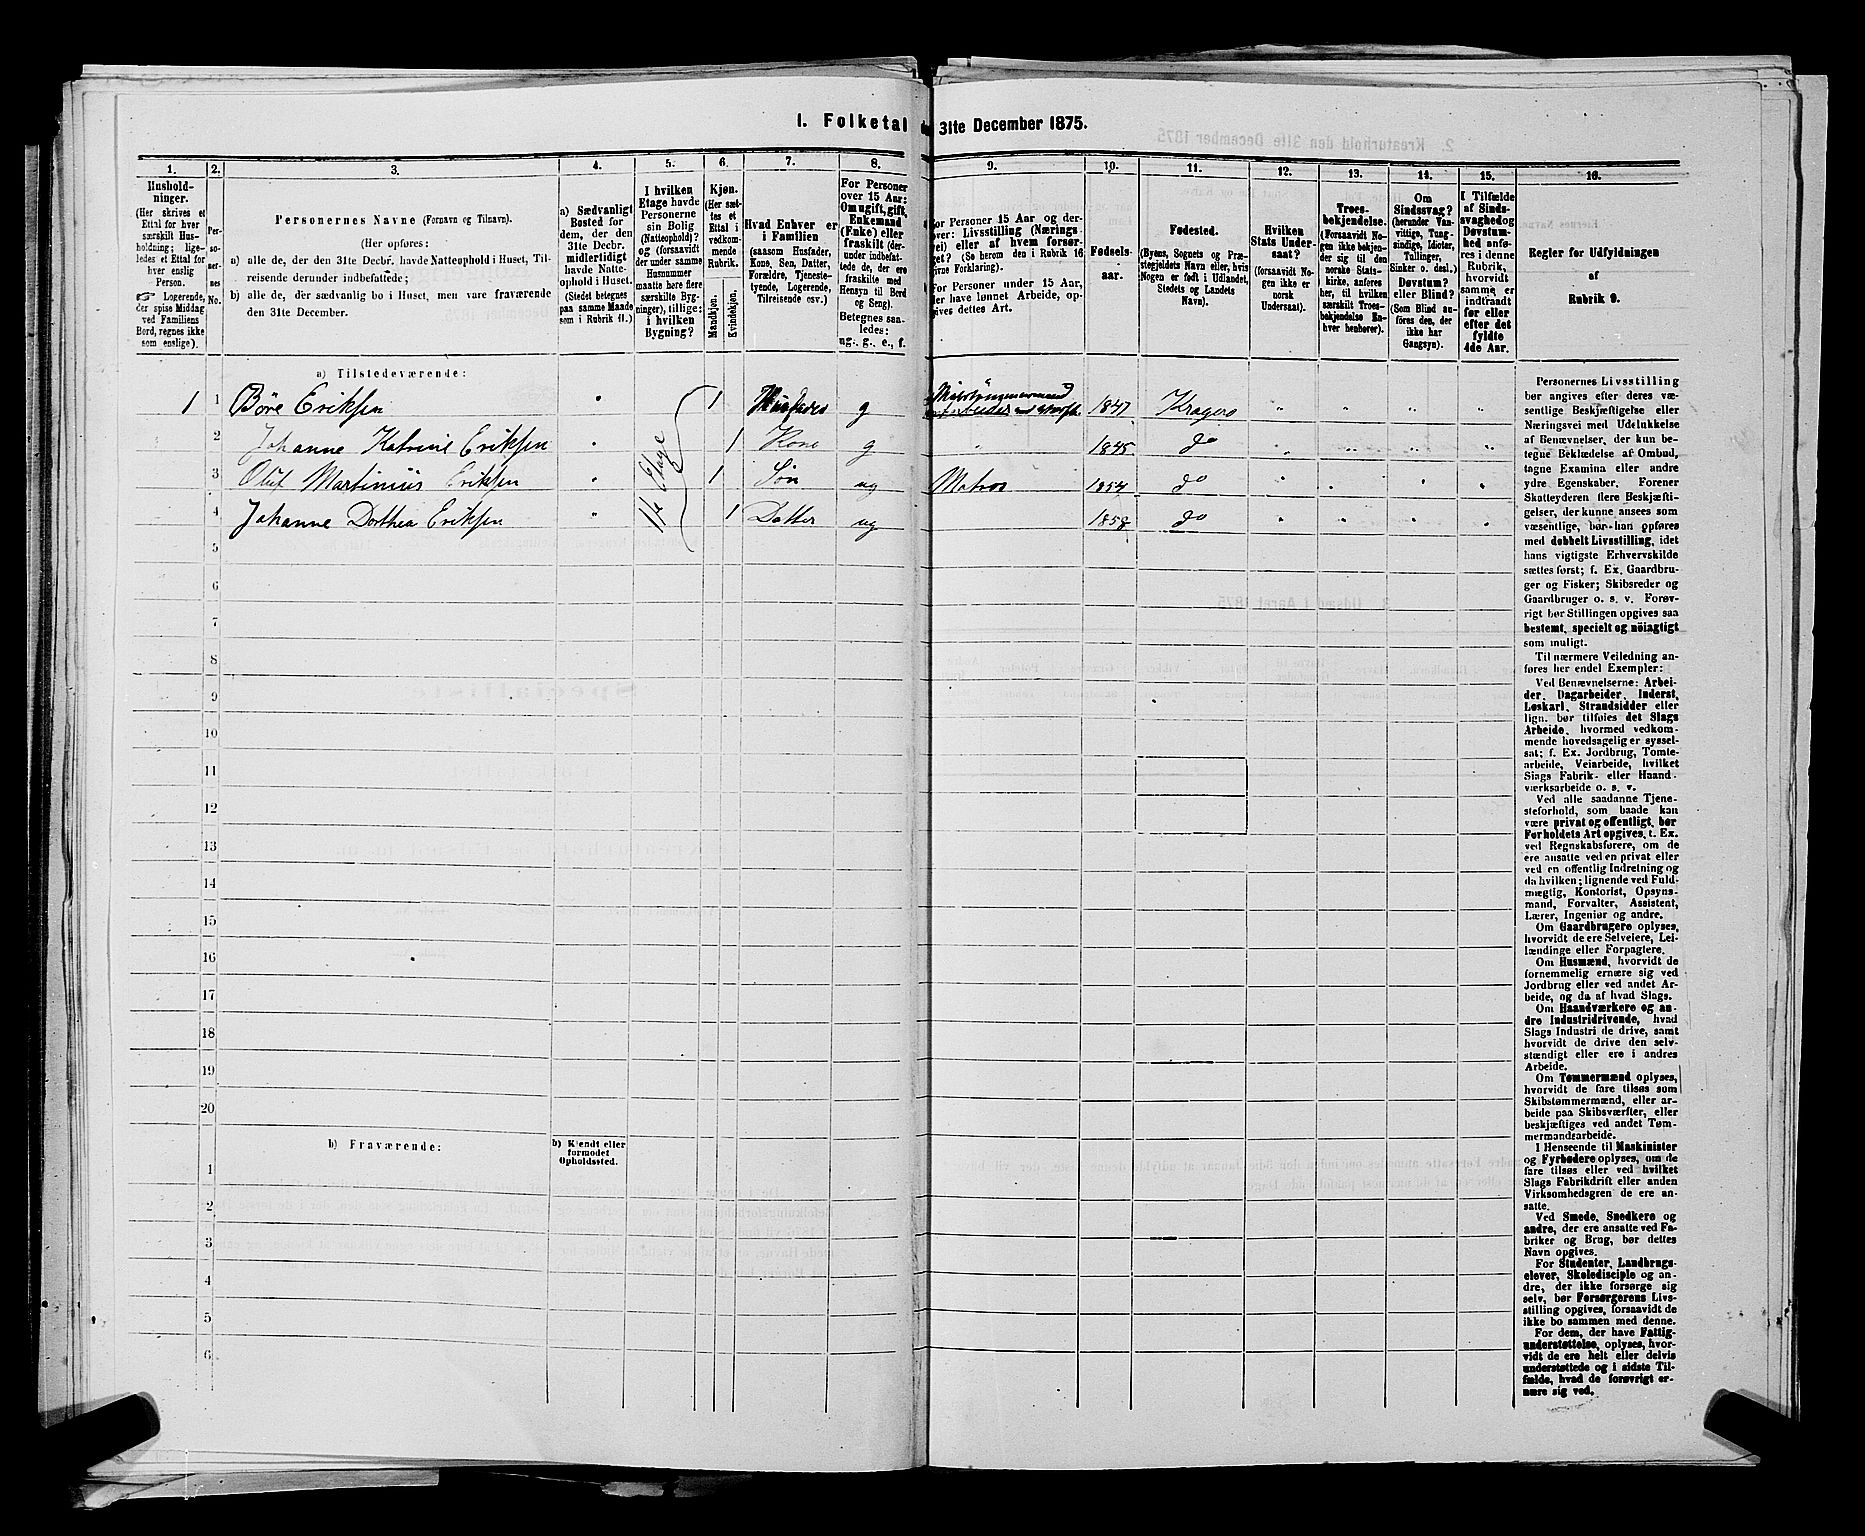 1. Folketal den 31te December 1875.
1.
2.
3.
4.
5.
6.
7.
8.
9.
10.
11.
12.
13.
14.
15.
16.
Hushold-
ninger.
(Her skrives et
Ettal for hver
særskilt Hus-
holdning; lige-
ledes et Ettal for
hver enslig
Person.
☞ Logerende,
der spise Middag
ved Familiens
Bord, regnes ikke
som enslige).
Per-
so-
ner-
nes
No.
Personernes Navne (Fornavn og Tilnavn).
(Her opføres:
a) alle de, der den 31te Decbr. havde Natteophold i Huset, Til-
reisende derunder indbefattede;
b) alle de, der sædvanlig bo i Huset, men vare fraværende
den 31te December.
a) Sædvanligt
Bosted for
dem, der den
31te Decbr.
midlertidigt
havde Natte-
ophold i Huset.
(Stedet betegnes
paa samme Maade
som i Rubrik 11.)
I hvilken
Etage havde
Personerne
sin Bolig
(Natteophold)?
og (forsaavidt
der under samme
Husnummer
maatte høre flere
særskilte Byg-
ninger), tillige:
i hvilken
Bygning?
Kjøn.
(Her sæt-
tes et
Ettal i
vedkom-
mende
Rubrik.
Mandkjøn.
Kvindekjøn.
Hvad Enhver er
i Familien
(saasom Husfader,
Kone, Søn, Datter,
Forældre, Tjeneste-
tyende, Logerende,
Tilreisende osv.)
For Personer
over 15 Aar:
Om ugift, gift,
Enkemand
(Enke) eller
fraskilt (der-
under indbefat-
tede de, der ere
fraskilte med
Hensyn til Bord
og Seng).
Betegnes saa-
ledes:
ug., g., e., f.
For Personer 15 Aar og der-
over: Livsstilling (Nærings-
vei) eller af hvem forsør-
get? (Se herom den i Rubrik 16
givne Forklaring).
For Personer under 15 Aar,
der have lønnet Arbeide, op-
gives dettes Art.
Fødsels-
aar.
Fødested.
(Byens, Sognets og Præ-
stegjeldets Navn eller, hvis
Nogen er født i Udlandet,
Stedets og Landets
Navn).
Hvilken
Stats Under-
saat?
(forsaavidt No-
gen ikke er
norsk
Undersaat).
Troes-
bekjendelse.
(Forsaavidt No-
gen ikke bekjen-
der sig til den
norske Stats-
kirke, anføres
her, til hvilken
særskilt Troes-
bekjendelse En-
hver henhører).
Om
Sindssvag?
(herunder Van-
vittige, Tung-
sindige, Idioter,
Tullinger,
Sinker o. desl.)
Døvstum?
eller Blind?
(Som Blind an-
føres den, der
ikke har
Gangsyn).
I Tilfælde
af Sinds-
svaghed og
Døvstum-
hed anfø-
res i denne
Rubrik,
hvorvidt
samme er
indtraadt
før eller
efter det
fyldte
4de Aar.
Regler for Udfyldningen
af
Rubrik 9.
a) Tilstedeværende:
1 1 Böre Eriksen " 1 Husfader g 1847 Kragerø " " " "
2 Johanne Katrine Eriksen " 1 Kone g " 1845 do " " " "
3 Oluf Martinius Eriksen " 1 Søn ug Matros 1854 do " " " "
4 Johanne Dorthea Eriksen " 1 Datter ug 1858 do " " " "
1ste Etage
5
6
7
8
9
10
11
12
13
14
15
16
17
18
19
20
b) Fraværende:
b) Kjendt eller
formodet
Opholdssted.
1
2
3
4
5
6
Personernes Livsstilling
bør angives efter deres væ-
sentlige Beskjæftigelse eller
Næringsvei med Udelukkelse
af Benævnelser, der kun be-
tegne Beklædelse af Ombud,
tagne Examina eller andre
ydre Egenskaber. Forener
Skatteyderen flere Beskjæfti-
gelser, der kunne ansees som
væsentlige, bør han opføres
med dobbelt Livsstilling, idet
hans vigtigste Erhvervskilde
sættes først; f. Ex. Gaardbru-
ger og Fisker; Skibsreder og
Gaardbruger o. s. v. Forøv-
rigt bør Stillingen opgives saa
bestemt, specielt og nöiagtigt
som muligt.
Til nærmere Veiledning an-
føres her endel Exempler:
Ved Benævnelserne: Arbei-
der, Dagarbeider, Inderst,
Løskarl, Strandsidder eller
lign. bør tilføies det Slags
Arbeide, hvormed vedkom-
mende hovedsagelig er syssel-
sat; f. Ex. Jordbrug, Tomte-
arbeide, Veiarbeide, hvilket
Slags Fabrik- eller Haand-
værksarbeide o. s. v.
Ved alle saadanne Tjene-
steforhold, som baade kan
være privat og offentligt, bør
Forholdets Art opgives, t. Ex.
ved Regnskabsførere, om de
ere ansatte ved en privat eller
ved en offentlig Indretning og
da hvilken; lignende ved Fuld-
mægtig, Kontorist, Opsyns-
mand, Forvalter, Assistent,
Lærer, Ingeniør og andre.
Om Gaardbrugere oplyses,
hvorvidt de ere Selveiere, Lei-
lændinge eller Forpagtere.
Om Husmænd, hvorvidt de
fornemmelig ernære sig ved
Jordbrug eller ved andet Ar-
beide, og da af hvad Slags.
Om Haandværkere og an-
dre Industridrivende, hvad
Slags Industri de drive, samt
hvorvidt de drive den selv-
stændigt eller ere i andres
Arbeide.
Om Tømmermænd oplyses,
hvorvidt de fare tilsøs som
Skibstømmermænd, eller ar-
beide paa Skibsværfter, eller
beskjæftiges ved andet Tøm-
mermandsarbeide.
I Henseende til Maskinister
og Fyrbødere oplyses, om de
fare tilsøs eller ved hvilket
Slags Fabrikdrift eller anden
Virksomhedsgren de ere an-
satte.
Ved Smede, Snedkere og
andre, der ere ansatte ved Fa-
briker og Brug, bør dettes
Navn opgives.
For Studenter, Landbrugs-
elever, Skoledisciple og an-
dre, der ikke forsørge sig
selv, bør Forsørgerens Livs-
stilling opgives, forsaavidt de
ikke bo sammen med denne.
For dem, der have Fattig-
understøttelse, oplyses, hvor-
vidt de ere helt eller delvis
understøttede og i sidste Til-
fælde, hvad de forøvrigt er-
nære sig ved.